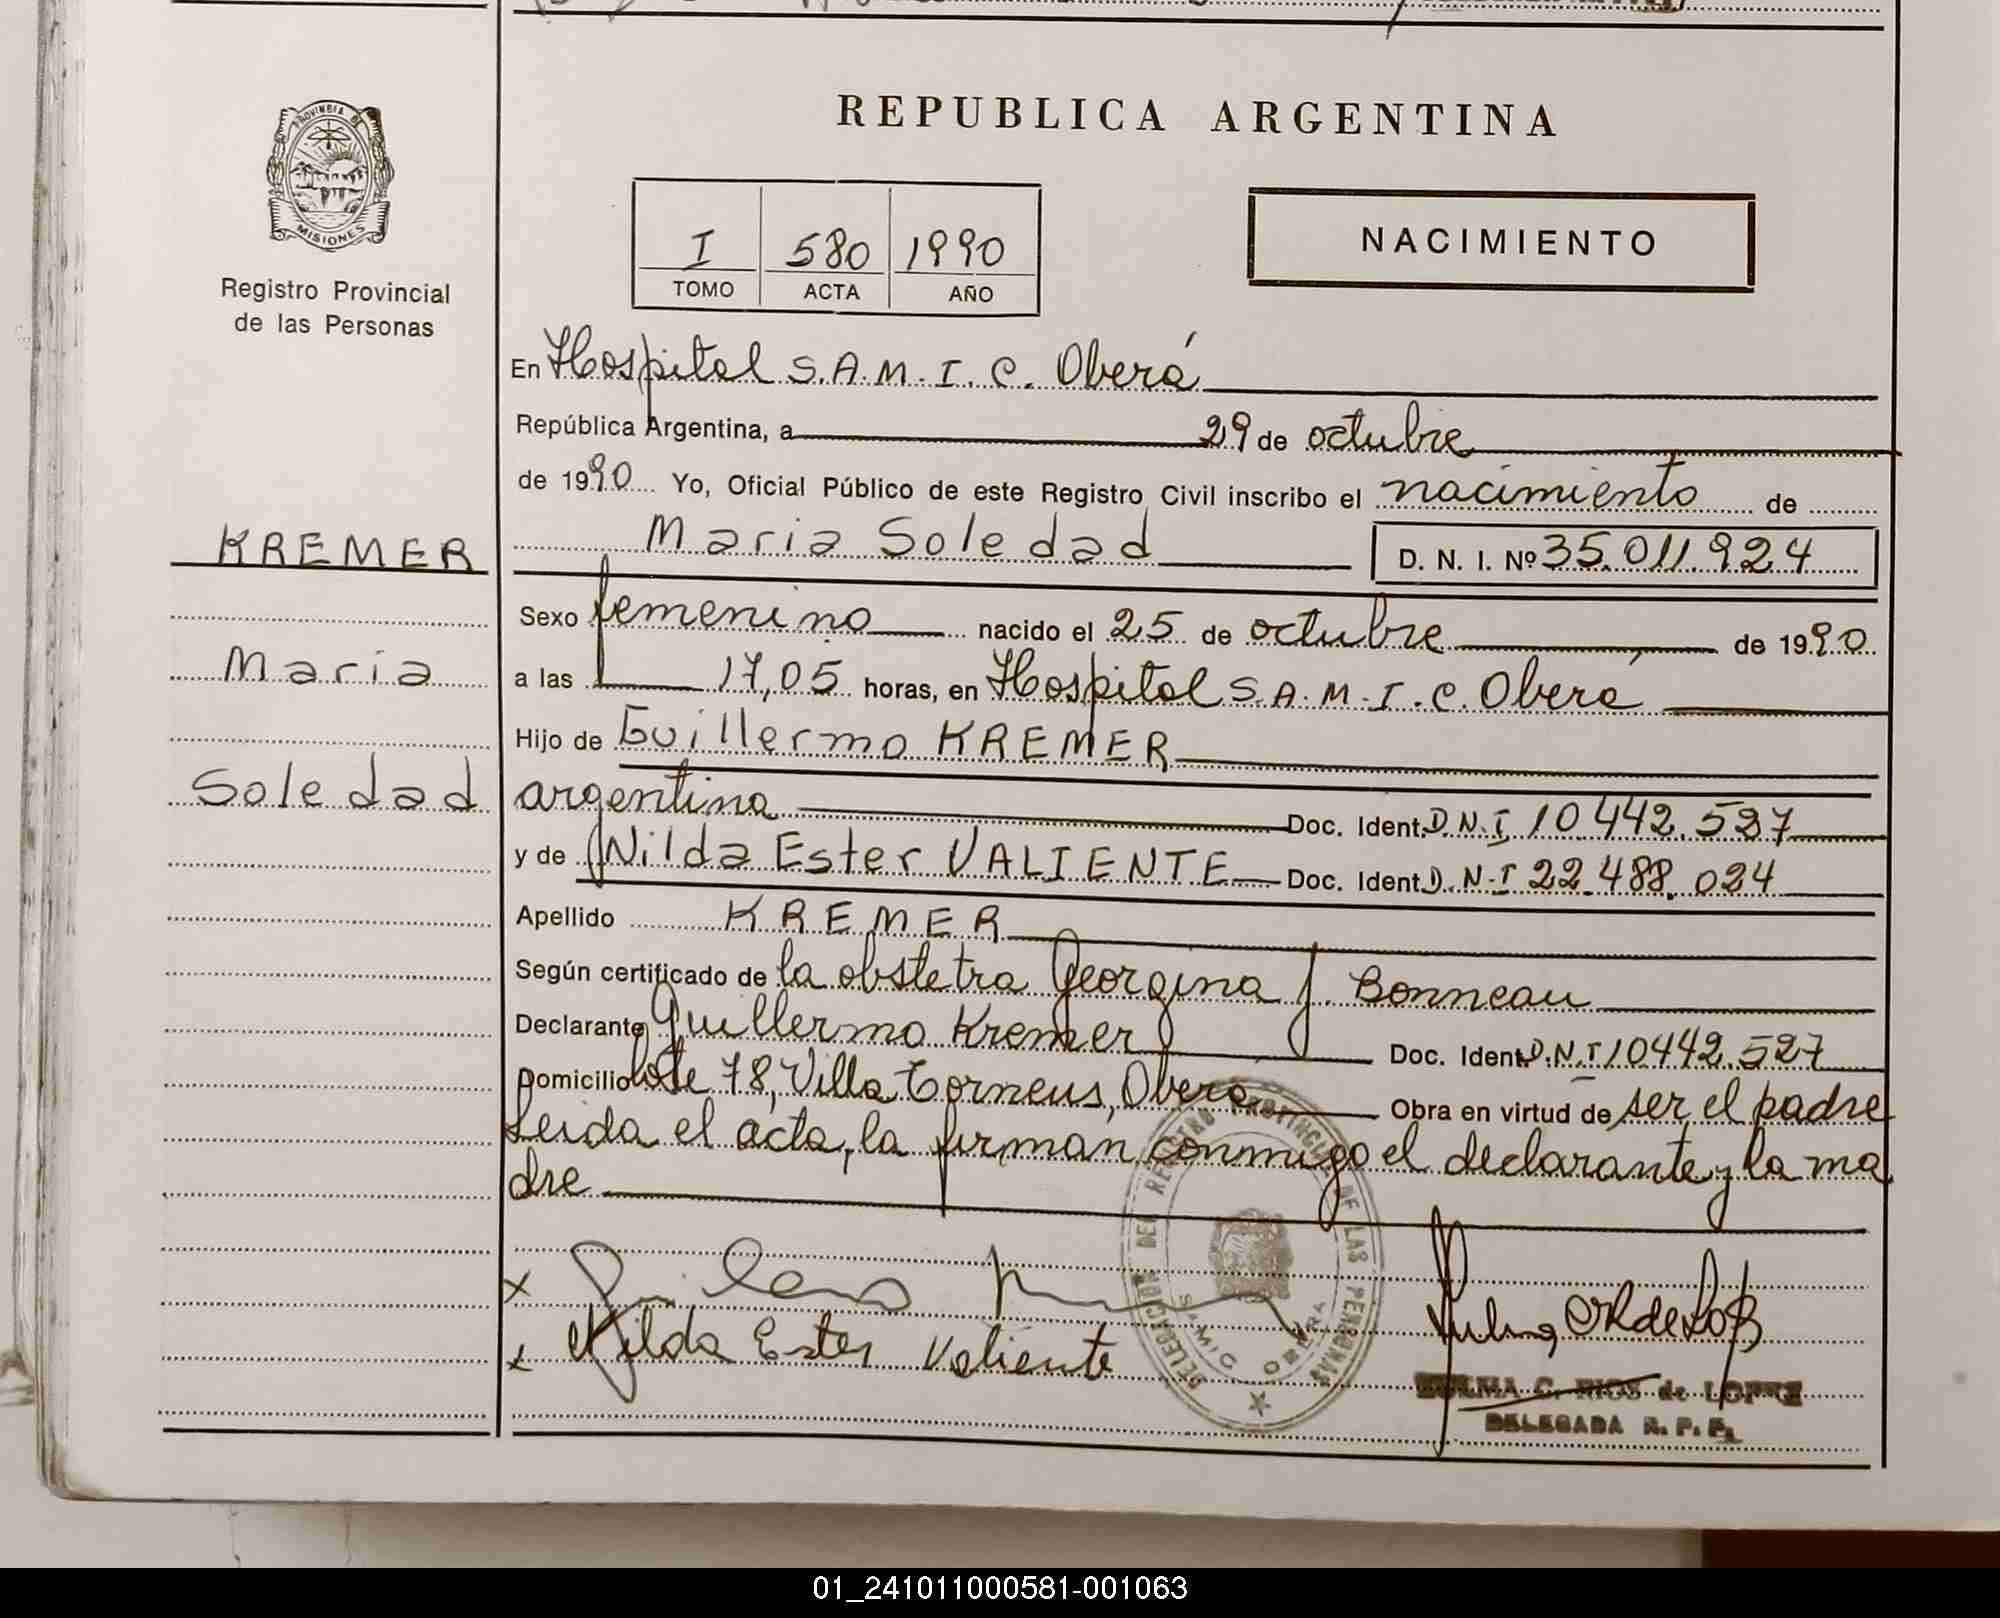 REPUBLICA ARGENTINA
PROVINCIA DE
MISIONES
Registro Provincial
de las Personas
I 580 1990
TOMO ACTA AÑO
NACIMIENTO
En Hospital S.A.M.I.C. Oberá
República Argentina, a 29 de octubre
de 1990 Yo, Oficial Público de este Registro Civil inscribo el nacimiento de
Maria Soledad D. N. I. Nº 35.011.924
KREMER
Maria
Soledad
Sexo femenino nacido el 25 de octubre de 1990
a las 17,05 horas, en Hospital S.A.M.I.C. Obera
Hijo de Guillermo KREMER
argentina Doc. Ident. D.N.I 10.442.527
y de Nilda Ester VALIENTE Doc. Ident. D.N.I 22.488.024
Apellido KREMER
Según certificado de la obstetra Georgina J. Bonneau
Declarante Guillermo Kremer Doc. Ident. D.N.I 10442.527
Domicilio lote 78, Villa Torneus, Obera Obra en virtud de ser el padre
Leida el acta, la firman conmigo el declarante y la ma
dre
x
x Nilda Ester Valiente
DELEGACION DEL REGISTRO PROVINCIAL DE LAS PERSONAS
SAMIC OBERA
C. RIOS de LOPEZ
DELEGADA R. P. P.
01_241011000581-001063